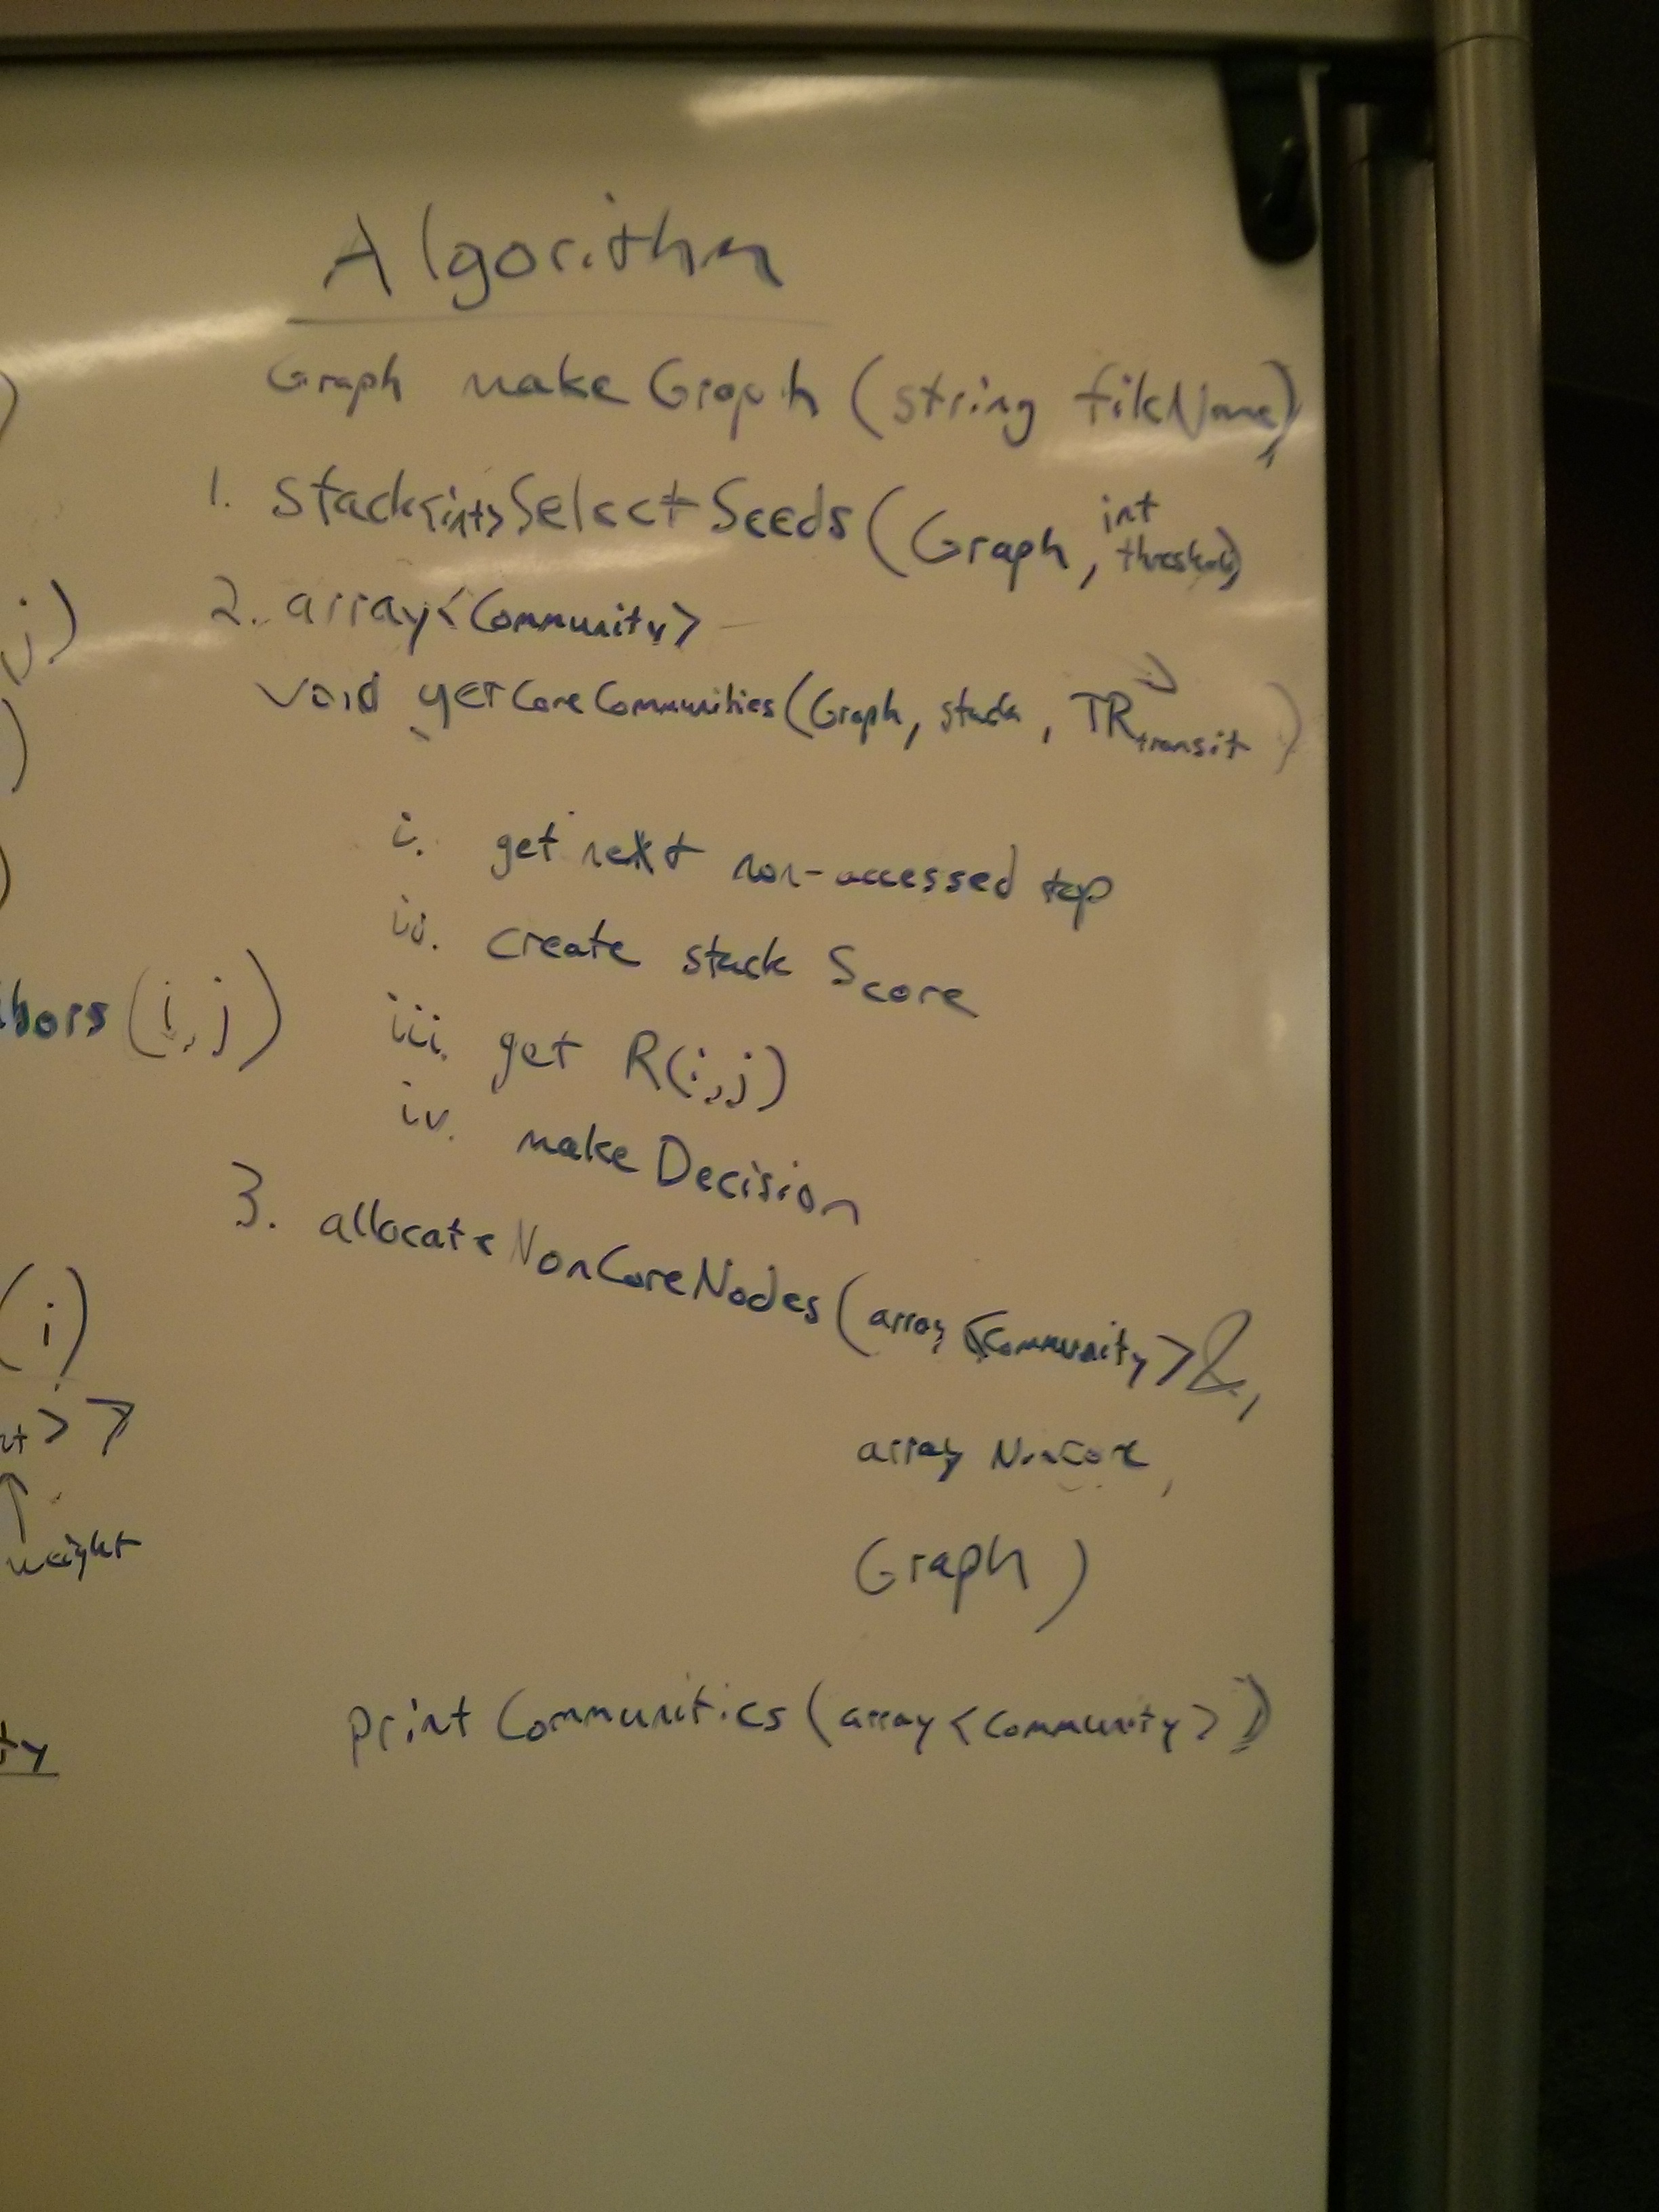 Algorithm
Graph makeGraph (string fileName)
1. stack<int> SelectSeeds (Graph, int threshold)
2. array<Community>
void getCoreCommunities (Graph, stack, TR transit)
i. get next non-accessed top
ii. create stack Score
iii. get R(i,j)
iv. make Decision
3. allocateNonCoreNodes (array <Community>&,
array NonCore,
Graph)
print Communities (array <community>)
j)
bors (i,j)
(i)
>>
weight
ty